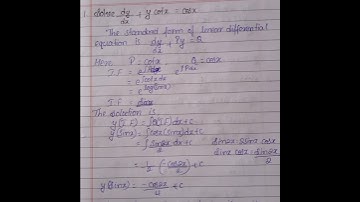 1. Solve dy/dx + y cotx = cosx
The standard form of linear differential
equation is dy/dx + Py = Q
Here P = cotx Q = cosx
I.F = e^∫Pdx
= e^∫cotx dx
= e^log(sinx)
I.F = Sinx
The solution is
y(I.F) = ∫Q(I.F)dx+c
y(sinx) = ∫cosx(sinx)dx+c
= ∫Sin2x/2 dx+c
sin2x = 2sinx cosx
sinx cosx = sin2x/2
= 1/2 (-cos2x/2) + c
y(sinx) = -cos2x/4 + c